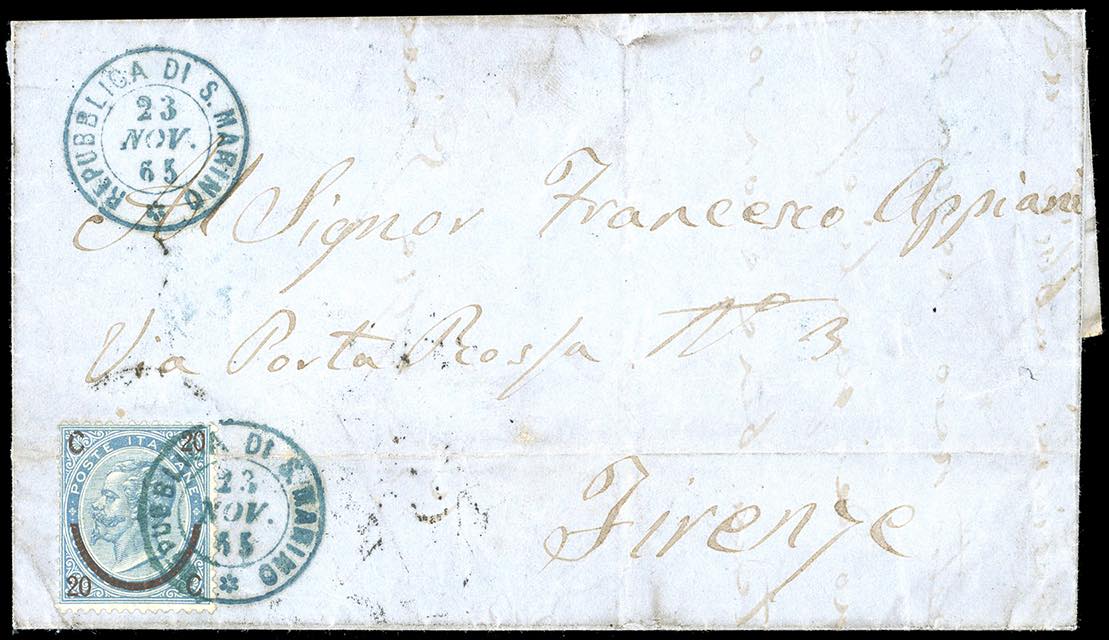 REPUBBLICA DI S. MARINO
23
NOV.
65
Al Signor Francesco Appiani
Via Porta Rossa N° 3
Firenze
C 20
POSTE ITALIANE
20 C
REPUBBLICA DI S. MARINO
23
NOV.
65